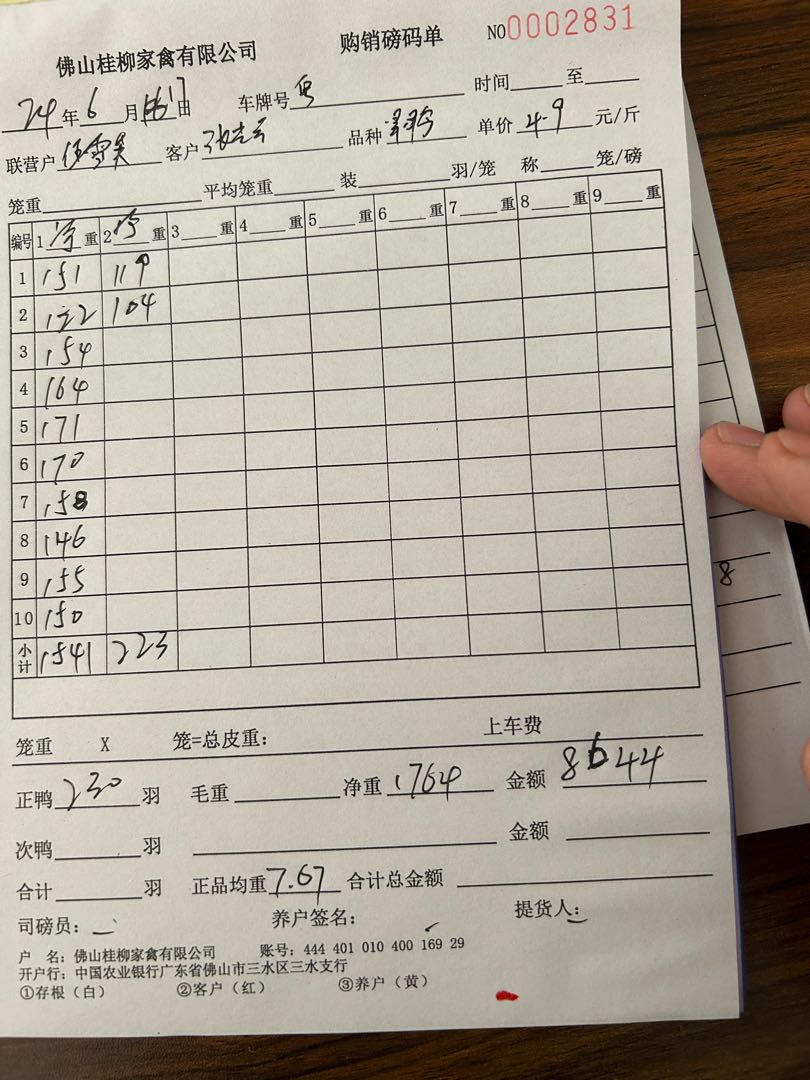 佛山桂柳家禽有限公司 购销磅码单 NO0002831
24年6月17日 车牌号 时间 至
联营户 客户 品种 单价4.9元/斤
笼重 平均笼重 装 羽/笼 称 笼/磅
编号 1净重 2净重 3重 4重 5重 6重 7重 8重 9重
1 151 119
2 122 104
3 154
4 164
5 171
6 170
7 158
8 146
9 155
10 150
小计 1541 223
笼重 X 笼=总皮重: 上车费
正鸭230羽 毛重 净重1764 金额8644
次鸭 羽 金额
合计 羽 正品均重7.67 合计总金额
司磅员: 养户签名: 提货人:
户 名: 佛山桂柳家禽有限公司 账号: 444 401 010 400 169 29
开户行: 中国农业银行广东省佛山市三水区三水支行
①存根（白） ②客户（红） ③养户（黄）
8